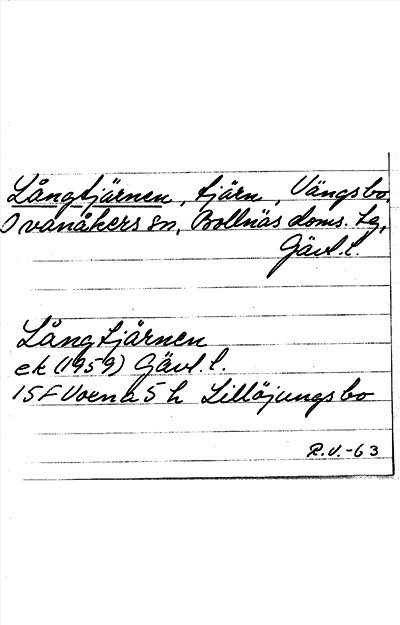 Långtjärnen, tjärn, Vängsbo,
Ovanåkers sn, Bollnäs doms. tg,
Gävl. l.
Långtjärnen
ek (1959) Gävl. l.
15F Voxna 5 h Lillöjungsbo
R.V.-63